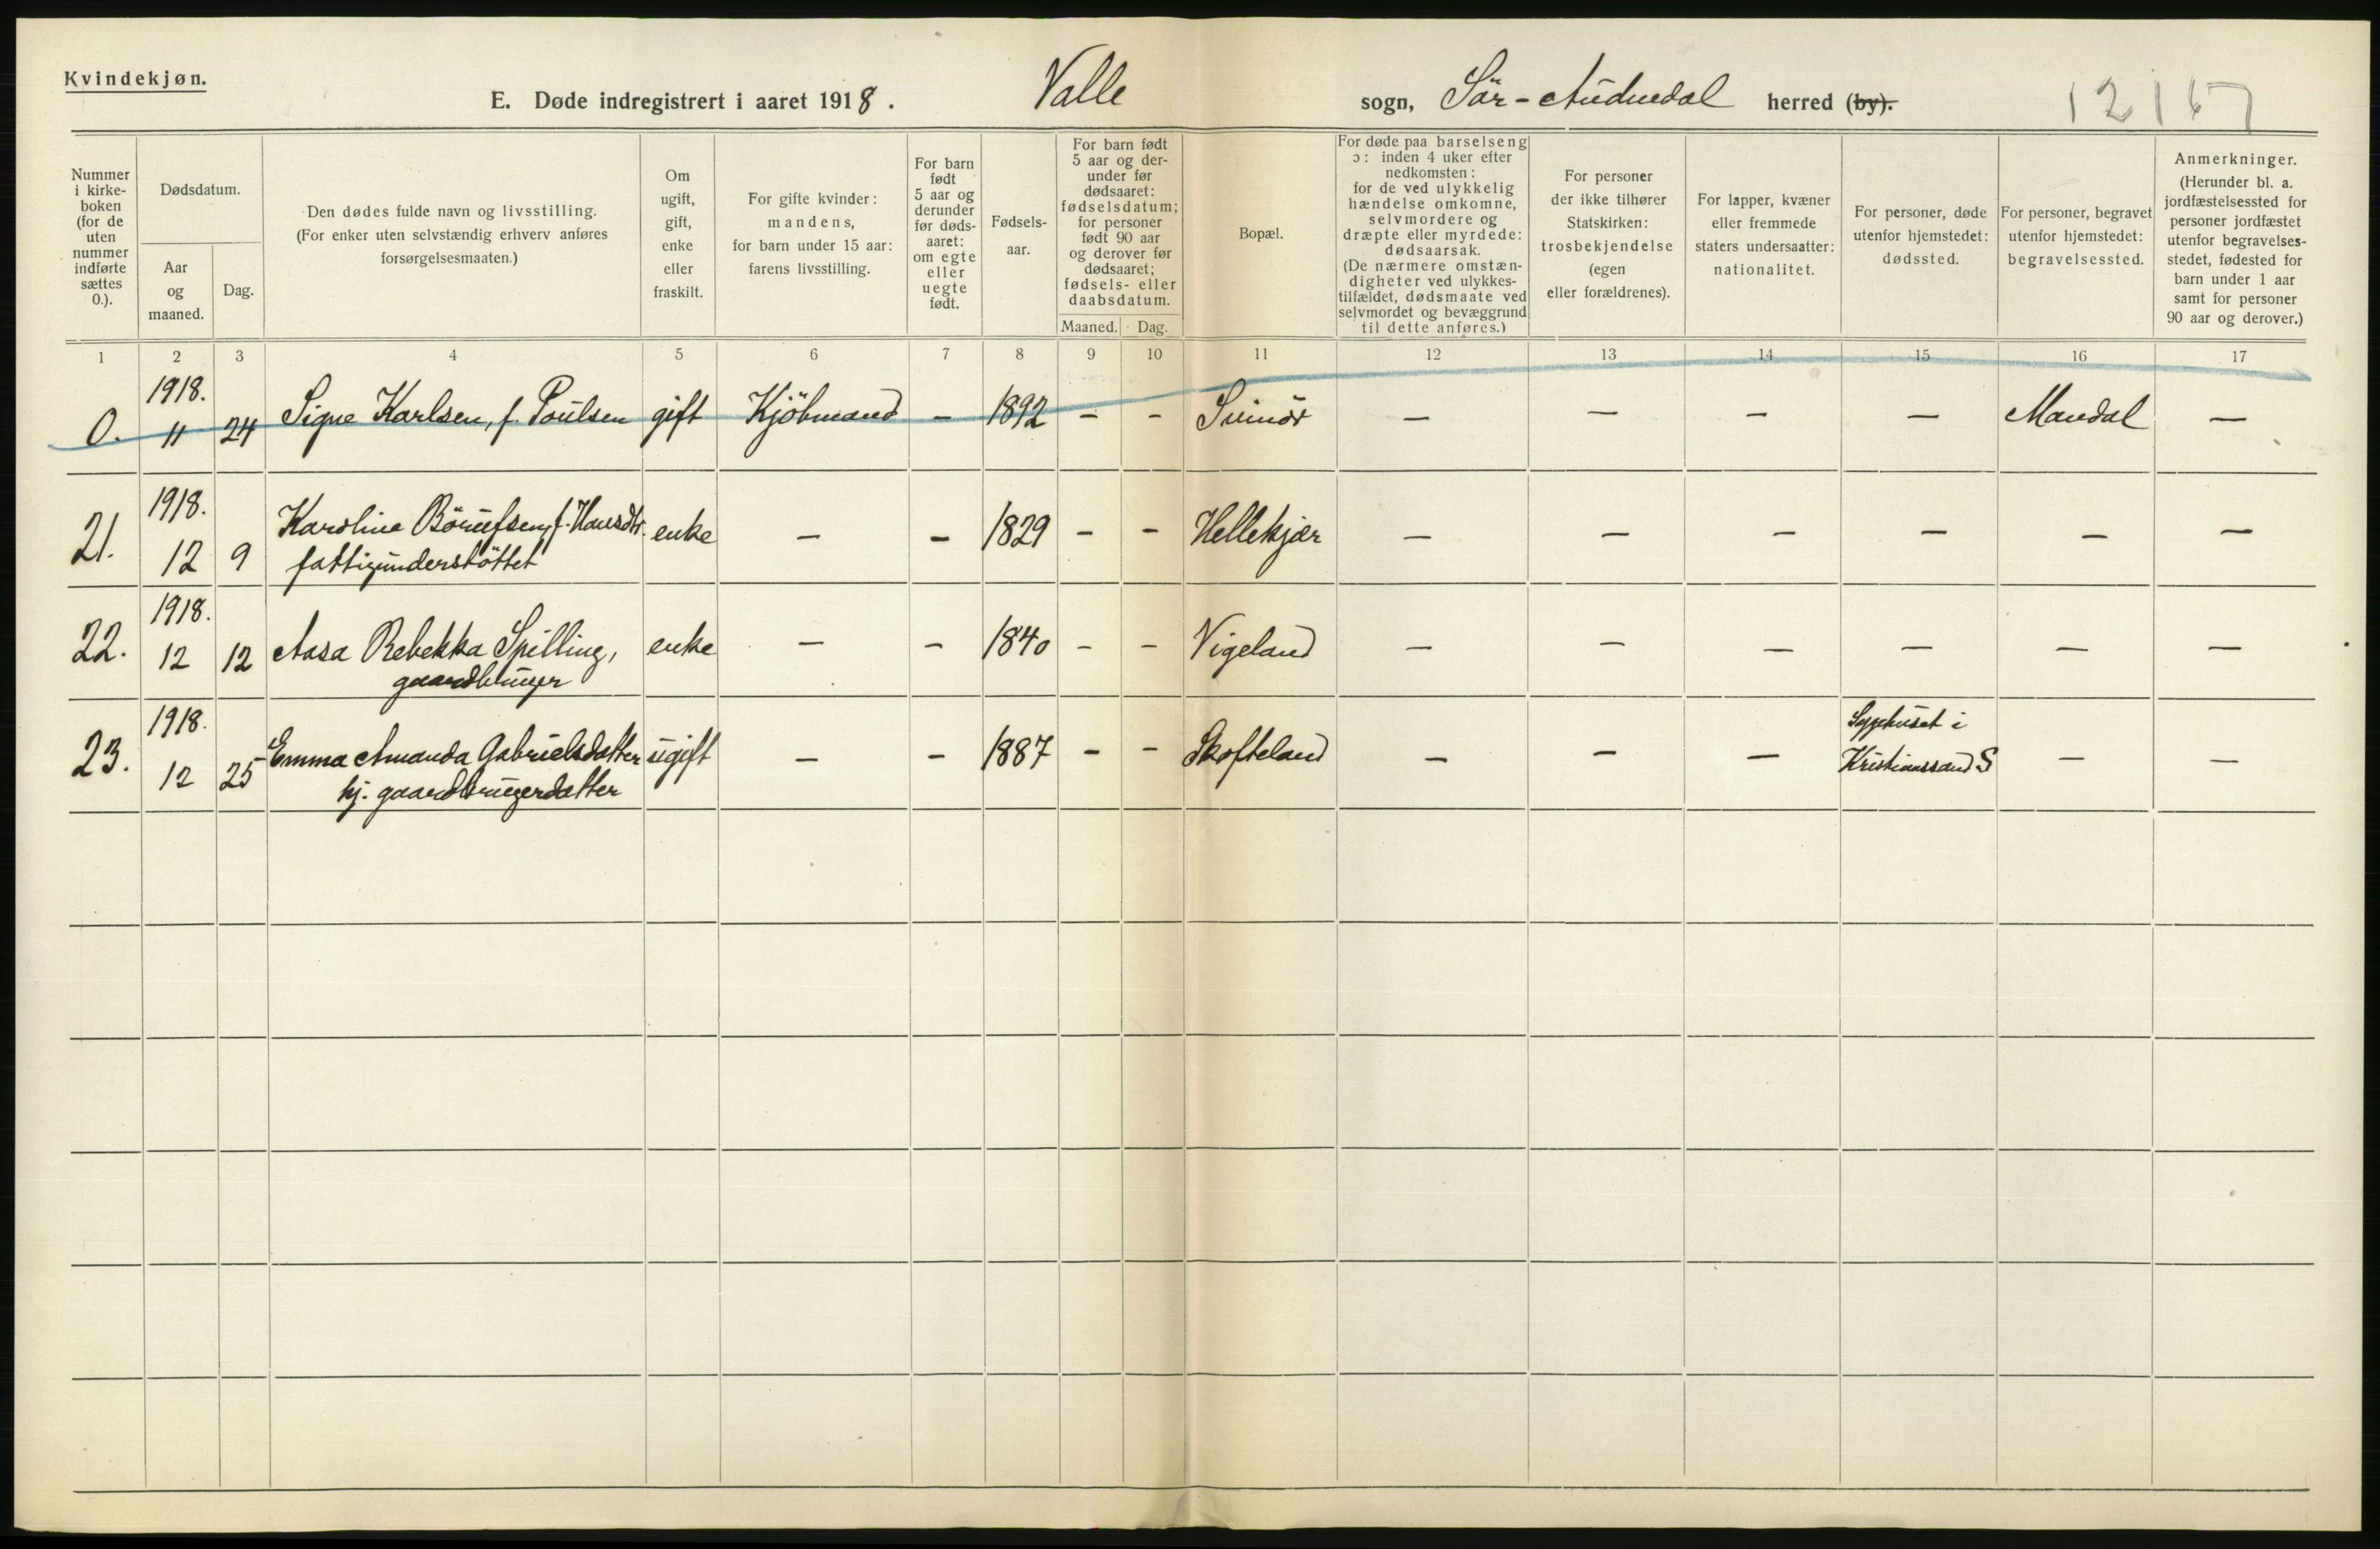 Kvindekjøn.
E. Døde indregistrert i aaret 1918. Valle sogn, Sör-Audnedal herred (by).
12167
Nummer i kirke-boken (for de uten nummer indførte sættes 0.).
Dødsdatum.
Aar og maaned.
Dag.
Den dødes fulde navn og livsstilling.
(For enker uten selvstændig erhverv anføres forsørgelsesmaaten.)
Om ugift, gift, enke eller fraskilt.
For gifte kvinder: mandens, for barn under 15 aar: farens livsstilling.
For barn født 5 aar og derunder før døds-aaret: om egte eller uegte født.
Fødsels-aar.
For barn født 5 aar og der-under før dødsaaret: fødselsdatum; for personer født 90 aar og derover før dødsaaret; fødsels- eller daabsdatum.
Maaned. Dag.
Bopæl.
For døde paa barselseng ɔ: inden 4 uker efter nedkomsten: for de ved ulykkelig hændelse omkomne, selvmordere og dræpte eller myrdede: dødsaarsak. (De nærmere omstæn-digheter ved ulykkes-tilfældet, dødsmaate ved selvmordet og bevæggrund til dette anføres.)
For personer der ikke tilhører Statskirken: trosbekjendelse (egen eller forældrenes).
For lapper, kvæner eller fremmede staters undersaatter: nationalitet.
For personer, døde utenfor hjemstedet: dødssted.
For personer, begravet utenfor hjemstedet: begravelsessted.
Anmerkninger.
(Herunder bl. a. jordfæstelsessted for personer jordfæstet utenfor begravelses-stedet, fødested for barn under 1 aar samt for personer 90 aar og derover.)
1 2 3 4 5 6 7 8 9 10 11 12 13 14 15 16 17
1918.
0. 11 24 Signe Karlsen, f. Poulsen gift Kjöbmand – 1892 – – Svinör – – – – Mandal –
1918.
21. 12 9 Karoline Börufsen, f. Hansdtr. enke – – 1829 – – Hellekjær – – – – – –
fattigunderstöttet
1918.
22. 12 12 Aasa Rebekka Spilling, enke – – 1840 – – Vigeland – – – – – –
gaardbruger
1918. Sygehuset i
23. 12 25 Emma Amanda Gabrielsdatter ugift – – 1887 – – Skofteland – – – Kristianssand S – –
hj. gaardbrugerdatter